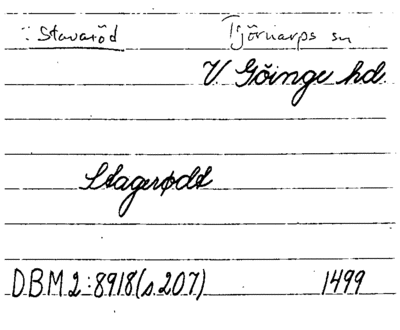 : Stavaröd Tjörnarps sn
V. Göinge hd.
Stagerødt
DBM 2:8918(s.207) 1499